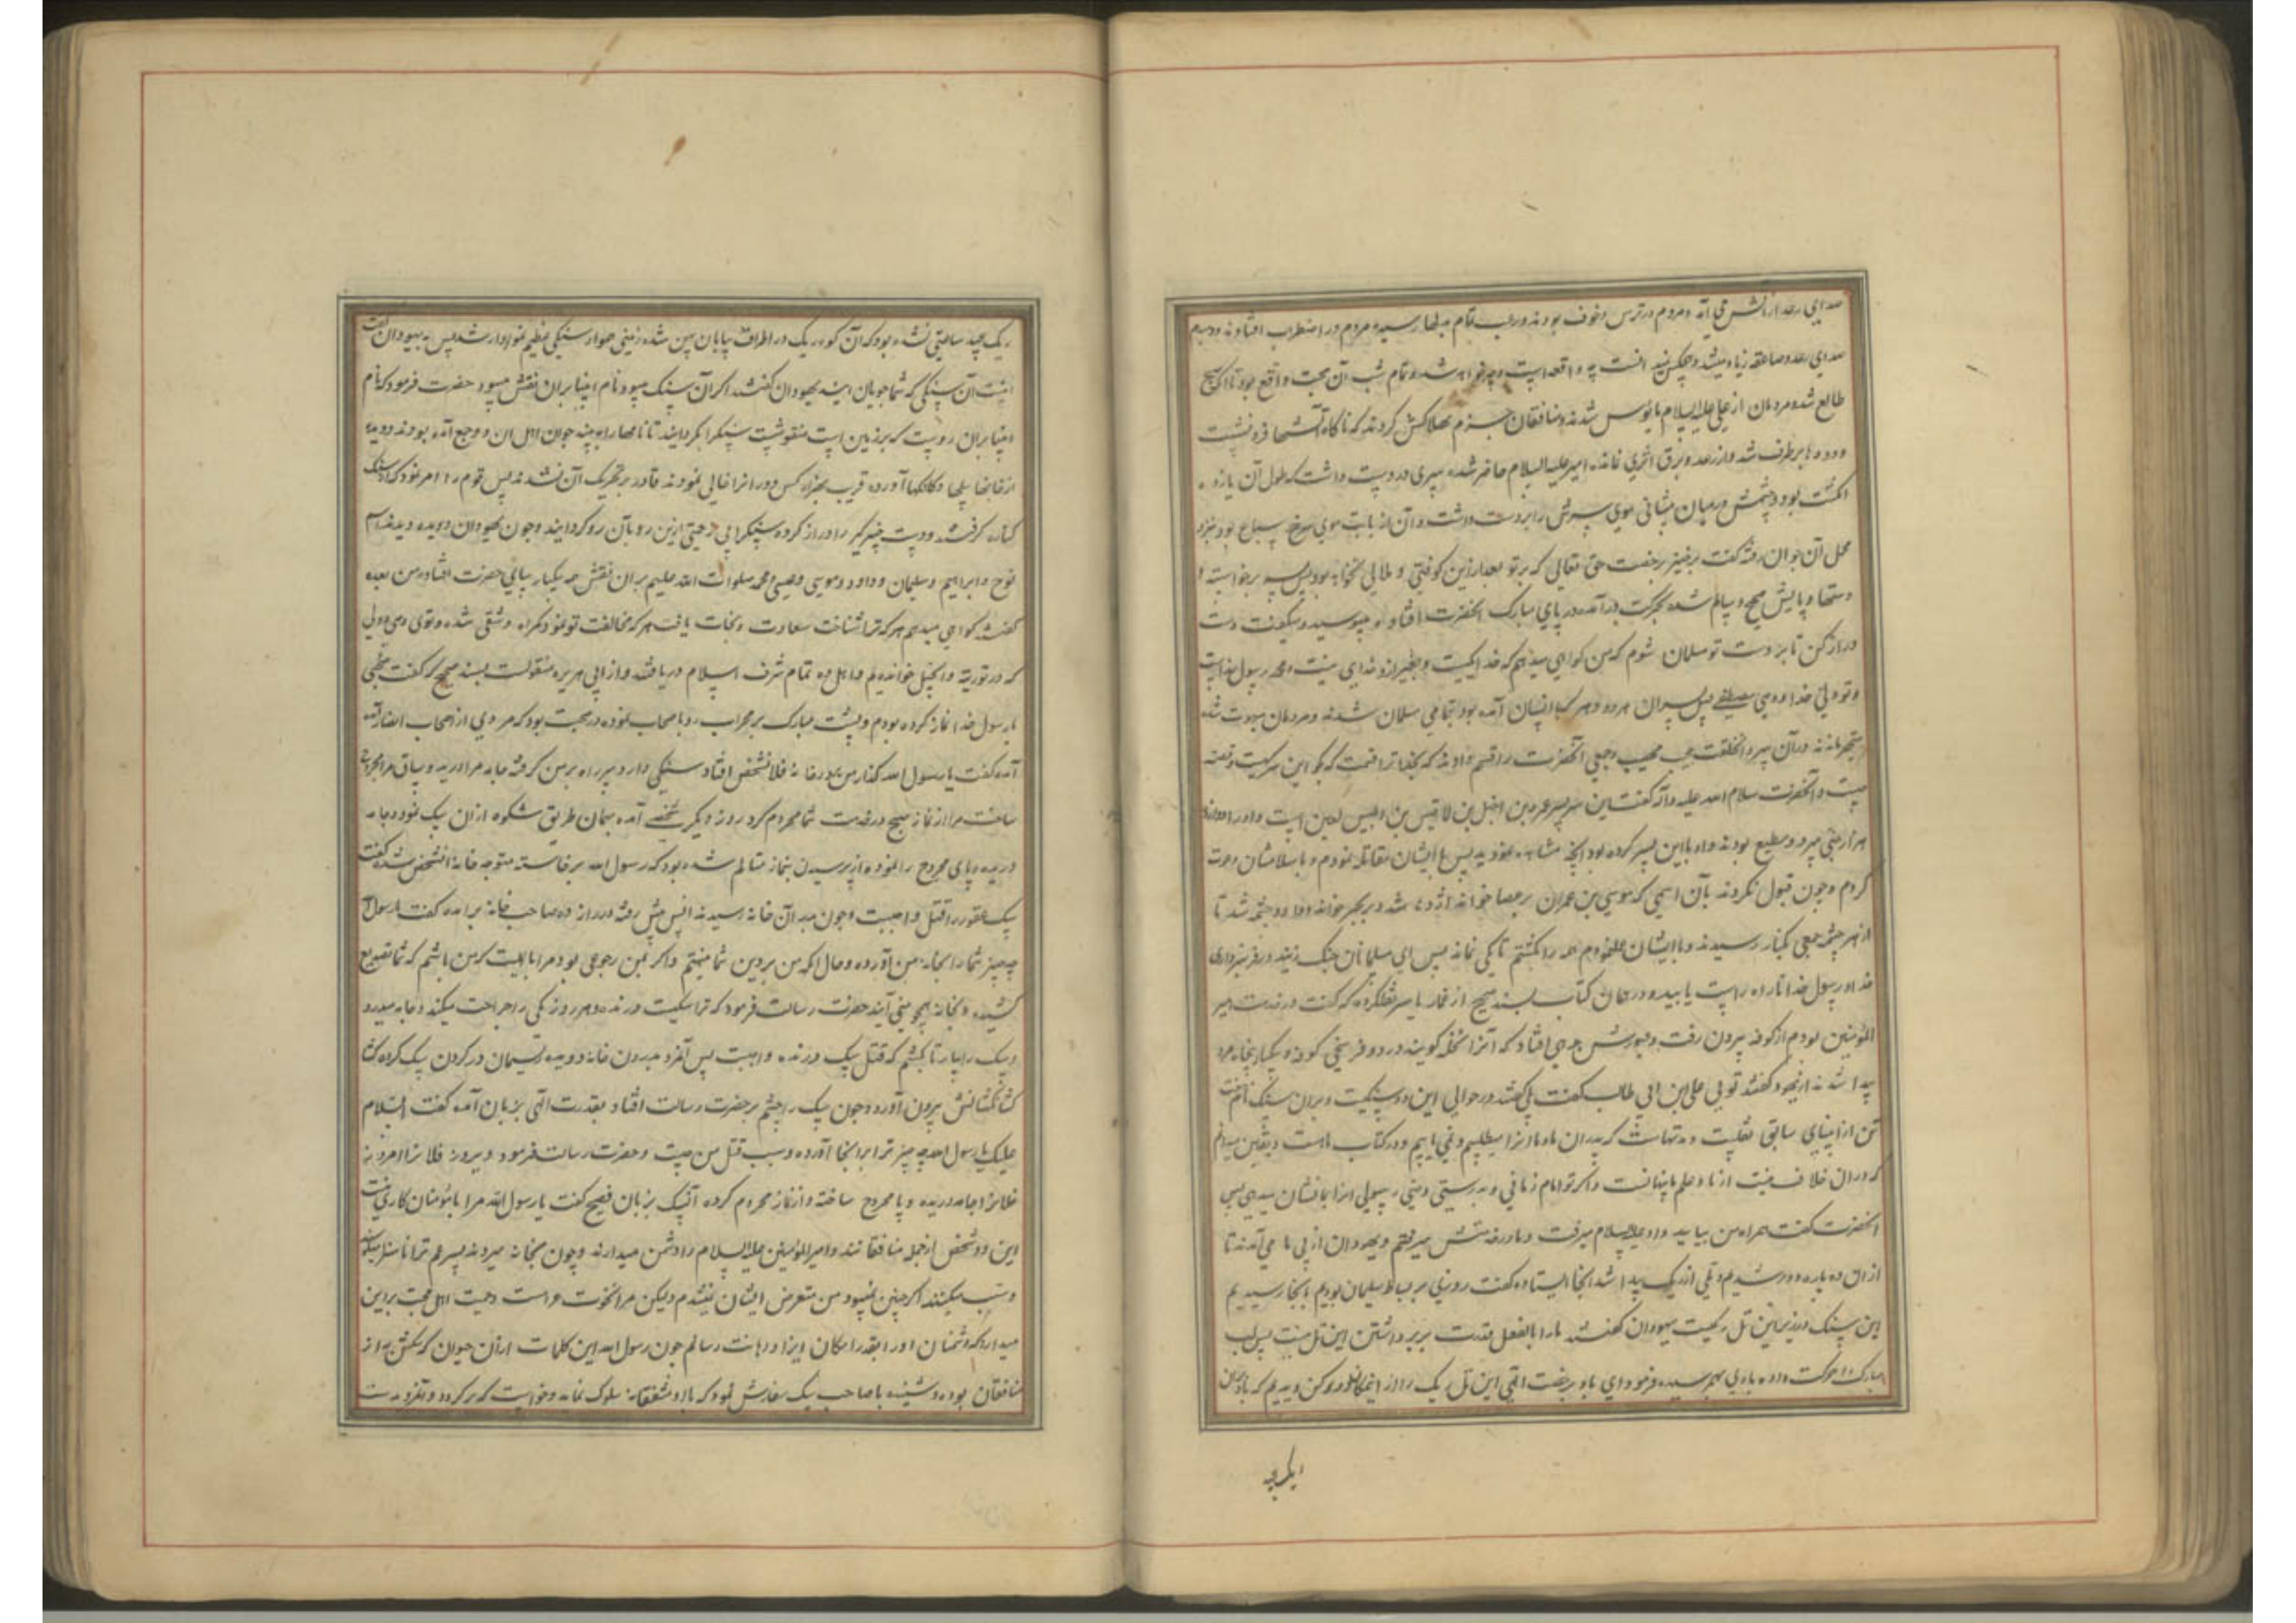 صدای رعد از آتش می آمد و مردم در ترس و خوف بودند و رعب تمام بدلها رسیده مردم در اضطراب افتادند و
صدای رعد و صاعقه زیاد میشد و هیچکس نمید انست چه واقعه است و چه خواهد شد و تمام شب آن صحبت واقع بود تا آنکه صبح
طالع شد و مردمان از علی علیه السلام مأیوس شدند و منافقان جزم بهلاکش کردند که ناگاه آتشها فرو نشست
و دودها برطرف شد و از رعد و برق اثری نماند امیر علیه السلام حاضر شده سری در دست داشت که طول آن یازده
انکشت بود و چشمش در میان پیشانی موی سرش را بر دست داشت و آن از بابت موی سباع بود بنزد
محل آن جوان رفته گفت برخیز برخصت حق تعالی که بر تو بعد ازین کوفتی و ملالی نخواهد بود پس پسر برخواسته
دستها و پایش صحیح و سالم شده بحرکت در آمده در پای مبارک انحضرت افتاد و میبوسید و میکفت دست
دراز کن تا بر دست تو مسلمان شوم که من کواهی میدهم که خدا یکیست و بغیر از و خدای نیست و محمد رسول خداست
و تو ولی خدا و وصی پس پسران مرده و هر که با ایشان آمده بود تمامی مسلمان شدند و مردمان مبهوت شده
متحیر ماندند در آن سر و آن خلقت عجیب مهیب و جمعی آنحضرت را قسم دادند که بخدا ترا قسمست که بکو این سر کیست و قصه
چیست و آنحضرت سلام الله علیه و آله کفت این سر پسر عمرو بن اخیل بن لاقیس بن ابلیس لعین است و او را
هزار جنی پیرو و مطیع بودند و او با این پسر کرده بود آنچه مشاهده نمودید پس با ایشان مقاتله نمودم و باسلامشان دعوت
کردم و چون قبول نکردند بآن اسمی که موسی بن عمران بر عصا خواند اژدها شد و بر بحر خواند دوازده چشمه شد تا
از هر چشمه جمعی بکنار رسیدند و با ایشان عمل نمودم همه را کشتم تا یکی نماند پس ای مسلمانان چنک زنید در فرمانبرداری
خدا و رسول خدا تا راه راست یابید و در همان کتاب بسند صحیح از عمار یاسر نقل کرده که گفت در خدمت امیر
المؤمنین بودم از کوفه بیرون رفت و عبورش بدهی افتاد که آنرا نخله کویند در دو فرسخی کوفه و یکبار پنجاه مرد
پیدا شدند از یهود و کفتند توئی علی ابن ابی طالب کفت بلی کفتند در حوالی این ده سنکیست و بران سنک نام هفت
تن از انبیای سابق نقلیست و مدتهاست که پدران ما و ما آنرا میطلبیم و نمی یابیم و در کتاب ماست و یقین میدانیم
که در ان خلاف نیست از ما و علم ما پنهانست و اگر تو امام زمانی و بدرستی وصی رسولی آنرا بما نشان میدهی پس
انحضرت کفت همراه من بیایید و او علیه السلام میرفت و ما در خدمتش میرفتیم و یهودان از پی ما می آمدند تا
از ان ده پاره دور شدیم و تلی از ریک پیدا شد آنجا ایستاده کفت روزی بر بساط سلیمان بودیم باینجا رسیدیم
این سنک در زیر این تل ریکست یهودان کفتند ما را بالفعل قدرت بر برداشتن این تل نیست پس لب
مبارک را حرکت داده بادی بهم رسیده فرمود ای باد برخصت الهی این تل ریک را از اینمکان دور کن دیدیم که باد بران
ریک چند ساعتی نشده بود که آن کوه ریک در اطراف بیابان پهن شده زمینی هموار سنکی عظیم نمودار شد پس به یهودان کفت
اینست آن سنکی که شما جویان اینید یهودان گفتند اکر آن سنک میبود نام انبیا بران نقش میبود حضرت فرمود که نام
انبیا بران رویست که بر زمین است منقوشست سنکرا بکردانید تا نامها را به بینید جوان اهل ان ده جمع آمده بودند و دویده
از خانها بیلها و کلنکها آورده قریب بهزار کس دور انرا خالی نمودند قادر بر تحریک آن نشدند پس قوم را امر نمود که از سنک
کناره کرفتند و دست خیبر گیر را دراز کرده سنکرا بی زحمتی ازین رو بآن رو کردانید و چون یهودان دویده دیدند اسم
نوح و ابراهیم و سلیمان و داود و موسی و عیسی و محمد صلوات الله علیهم بران نقش همه یکبار بپای حضرت افتاده
کفتند کواهی میدهیم هر که ترا شناخت سعادت و نجات یافت هر که مخالفت تو نمود کمراه و شقی شده و توی وصی و ولی
که در توریة و انجیل خوانده ایم و اهل ده تمام شرف اسلام دریافتند و از ابی هریره منقولست بسند صحیح که گفت صبحی
با رسول خدا نماز کرده بودم و پشت مبارک بر محراب رو باصحاب نموده در صحبت بود که مردی از اصحاب انصار
آمده کفت یا رسول الله کذار من بدر خانه فلانشخص افتاد سنکی دارد سر راه بر من کرفته جامه مرا درید و ساق مرا مجروح
ساخت مرا از نماز صبح در خدمت شما محروم کرد روز دیکر شخصی آمده بهمان طریق شکوه از ان سک نمود و جامه
دریده و پای مجروح را نموده از پرسیدن بنماز متالم شده بود که رسول الله برخاسته متوجه خانه انشخص شد گفت
سک عقور را قتل واجبست و چون بدر آن خانه رسیدند انس پیش رفته در زد و صاحب خانه برامده کفت یا رسول الله
چه چیز شما را بخانه من آورده و حال آنکه من بر دین شما نیستم و اکر بمن رجوعی بود مرا بایست که من باشم که شما تصدیع
کشیده بخانه همچو منی آیند حضرت رسالت فرمود که ترا سکیست درنده و هر روز یکی را جراحت میکند و جامه میدرد
سک را بیار تا بکشم که قتل سک درنده واجبست پس آنمرد بدرون خانه دویده ریسمان در کردن سک کرده کشا
کشانش بیرون آورد و چون سک را چشم بر حضرت رسالت افتاد بقدرت الهی بزبان آمده کفت السلام
علیک یا رسول الله چه چیز ترا بر اینجا آورده و سبب قتل من چیست و حضرت رسالت فرمود دیروز فلانرا امروز
فلانرا جامه دریده و پا مجروح ساخته و از نماز محروم کرده آنسک بزبان فصیح کفت یا رسول الله مرا با مؤمنان کاری نیست
این دو شخص از جمله منافقانند و امیر المؤمنین علیه السلام را دشمن میدارند و چون بخانه میروند پسر عم ترا ناسزا میکویند
و سب میکنند اکر چنین نمیبود من متعرض ایشان نمیشدم و لیکن مرا نخوت عرب است و حمیت اهل محبت برین
میدارد که دشمنان او را بقدر امکان ایذا و اهانت رسانم چون رسول الله این کلمات از آن حیوان که یکش به از
منافقان بوده و شنیده با صاحب سک سفارش نمود که با او مشفقانه سلوک نماید و خواست که بر کردد و آنمرد بدست
ریک چند